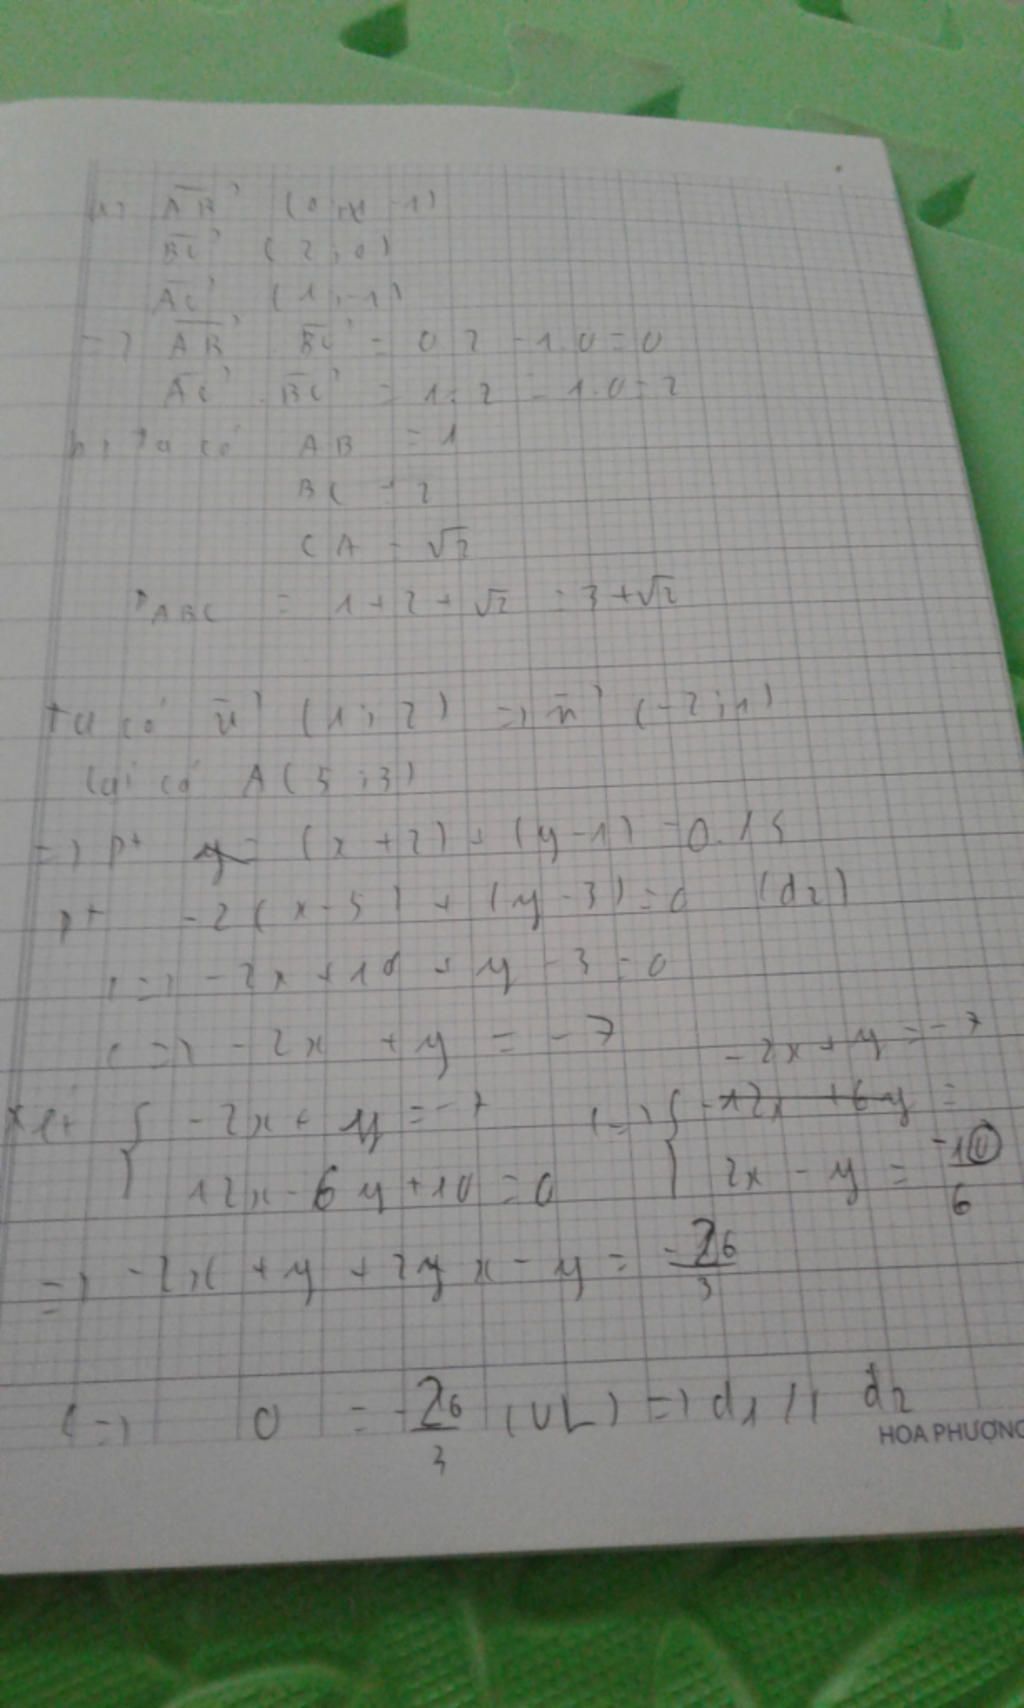 a) AB (0; -1)
BC (2; 0)
AC (1; -1)
=> AB . BC = 0.2 - 1.0 = 0
AC . BC = 1.2 - 1.0 = 2
b) Ta có AB = 1
BC = 2
CA = √2
P ABC = 1 + 2 + √2 = 3 + √2
Ta có u (1; 2) => n (-2; 1)
lại có A (5; 3)
=> pt (x + 2) + (y - 1) = 0
pt -2(x - 5) + (y - 3) = 0 (d2)
<=> -2x + 10 + y - 3 = 0
<=> -2x + y = -7
Xét { -2x + y = -7 <=> { -2x + y = -7
12x - 6y + 10 = 0 2x - y = -10/6
=> -2x + y + 2x - y = -26/3
<=> 0 = -26/3 (VL) => d1 // d2
HOA PHƯỢNG